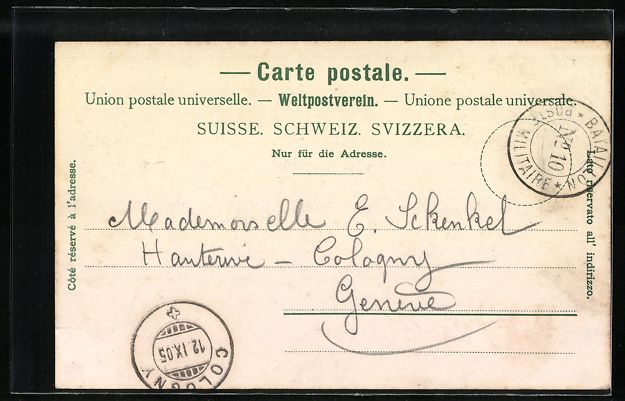 — Carte postale. —
Union postale universelle. — Weltpostverein. — Unione postale universale.
SUISSE. SCHWEIZ. SVIZZERA.
Nur für die Adresse.
Côté réservé à l'adresse.
Lato riservato all' indirizzo.
POSTE MILITAIRE * BATAILLON * No 10
Mademoiselle E. Schenkel
Hauterive – Cologny
Genève
COLOGNY
12.IX.05